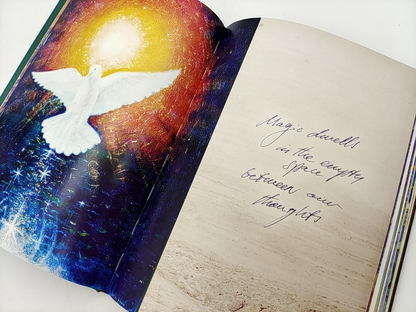 Magic dwells
in the empty
space
between our
thoughts